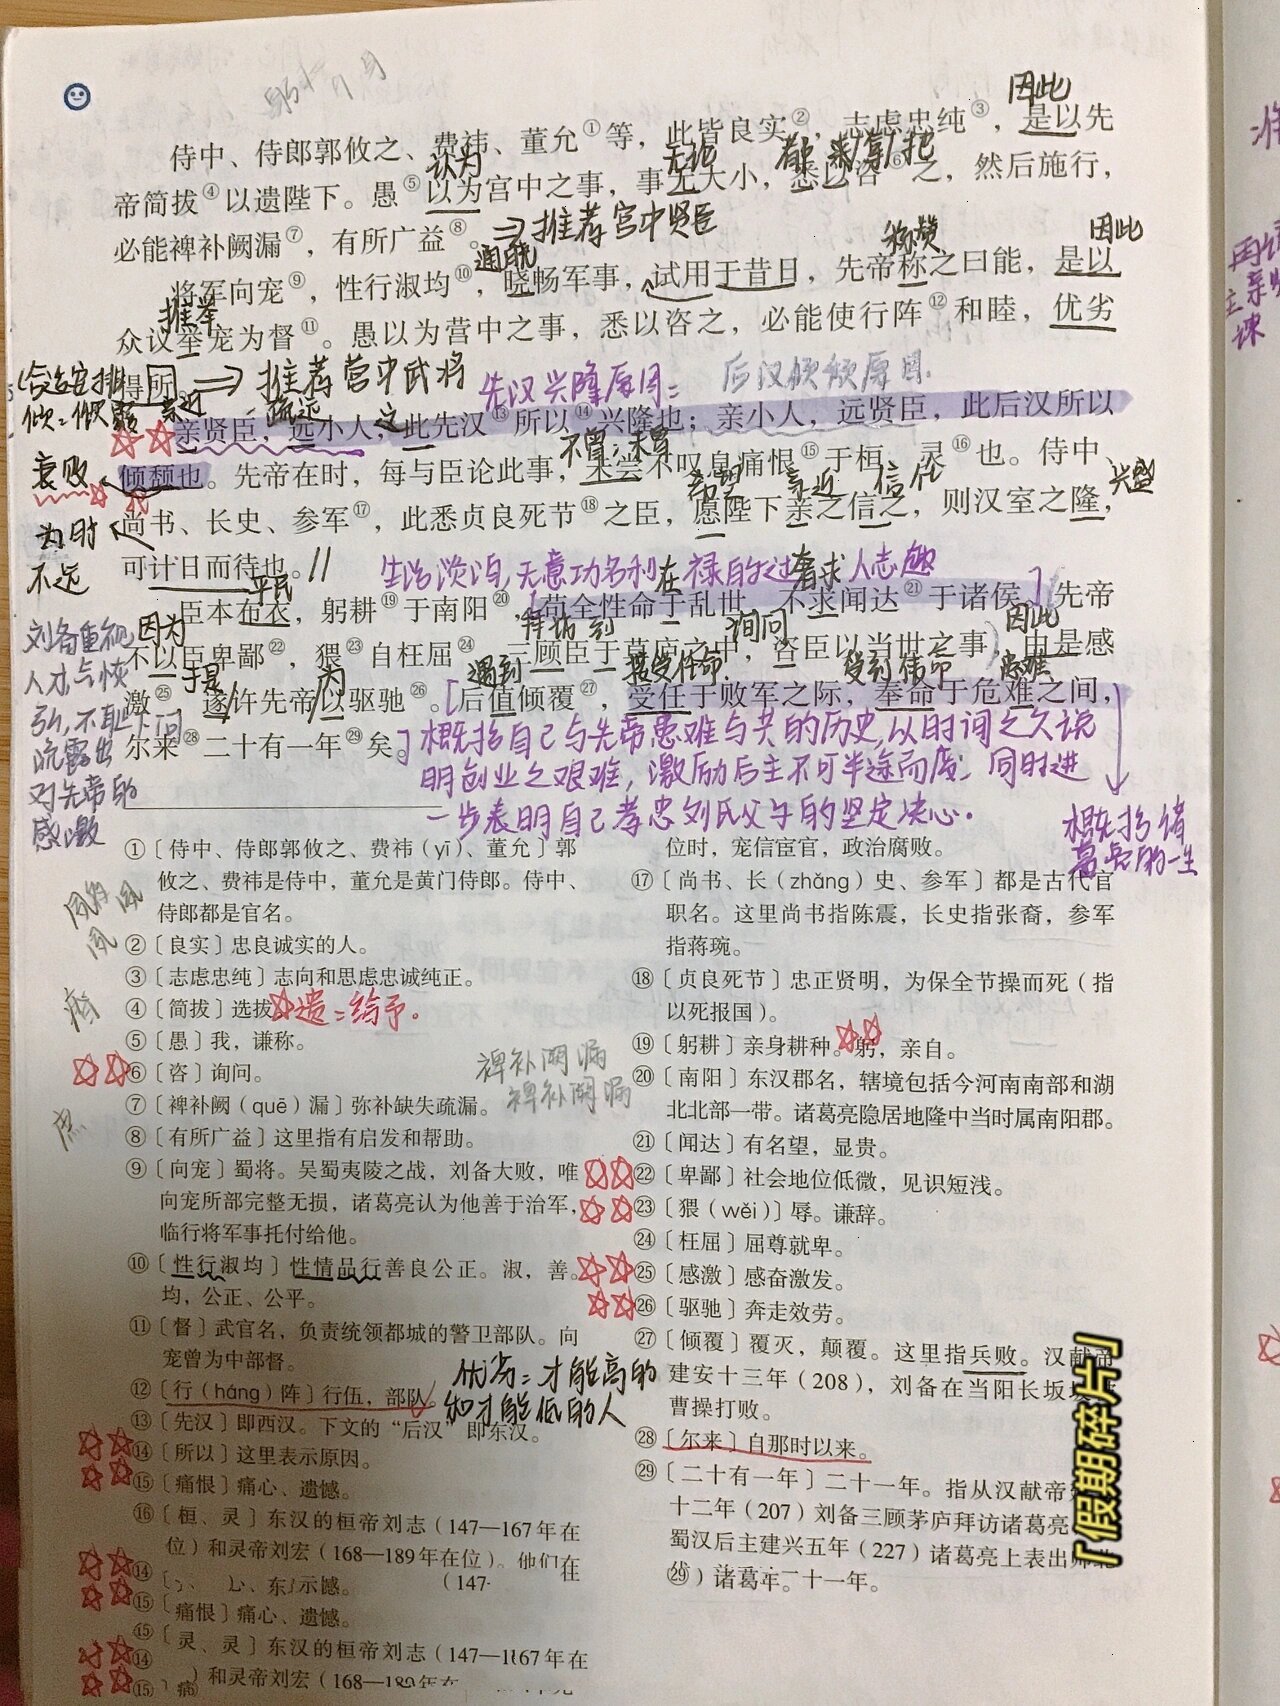 因此
侍中、侍郎郭攸之、费祎、董允①等，此皆良实②，志虑忠纯③，是以先
认为 无论 都 来/拿/把
帝简拔④以遗陛下。愚⑤以为宫中之事，事无大小，悉以咨⑥之，然后施行，
必能裨补阙漏⑦，有所广益⑧。⇒推荐宫中贤臣
通晓 称赞 因此
将军向宠⑨，性行淑均⑩，晓畅军事，试用于昔日，先帝称之曰能，是以
推举
众议举宠为督⑪。愚以为营中之事，悉以咨之，必能使行阵⑫和睦，优劣
得所⇒推荐营中武将 先汉兴隆原因： 后汉倾颓原因
亲近 疏远 这
亲贤臣，远小人，此先汉⑬所以⑭兴隆也；亲小人，远贤臣，此后汉所以
衰败 不曾；未曾
倾颓也。先帝在时，每与臣论此事，未尝不叹息痛恨⑮于桓、灵⑯也。侍中、
希望 亲近 信任 兴盛
尚书、长史、参军⑰，此悉贞良死节⑱之臣，愿陛下亲之信之，则汉室之隆，
为时
不远
可计日而待也。//
生活淡泊，无意功名利禄的过人志趣
平民 在 奢求
臣本布衣，躬耕⑲于南阳⑳，苟全性命于乱世，不求闻达㉑于诸侯。先帝
因为 拜访 到 询问 因此
不以臣卑鄙㉒，猥㉓自枉屈㉔，三顾臣于草庐之中，咨臣以当世之事，由是感
于是 为 遇到 接受任命 受到使命 患难
激㉕，遂许先帝以驱驰㉖。后值倾覆㉗，受任于败军之际，奉命于危难之间，
尔来㉘二十有一年㉙矣。
刘备重视
人才与恢
弘，不耻下问
流露出
对先帝的
感激
概括自己与先帝患难与共的历史，以时间之久说
明创业之艰难，激励后主不可半途而废；同时进
一步表明自己孝忠刘氏父子的坚定决心。
概括诸
葛亮的一生
①〔侍中、侍郎郭攸之、费祎（yī）、董允〕郭
攸之、费祎是侍中，董允是黄门侍郎。侍中、
侍郎都是官名。
②〔良实〕忠良诚实的人。
③〔志虑忠纯〕志向和思虑忠诚纯正。
④〔简拔〕选拔 遗：给予。
⑤〔愚〕我，谦称。
⑥〔咨〕询问。
裨补阙漏
裨补阙漏
⑦〔裨补阙（quē）漏〕弥补缺失疏漏。
⑧〔有所广益〕这里指有启发和帮助。
⑨〔向宠〕蜀将。吴蜀夷陵之战，刘备大败，唯
向宠所部完整无损，诸葛亮认为他善于治军，
临行将军事托付给他。
⑩〔性行淑均〕性情品行善良公正。淑，善。
均，公正、公平。
⑪〔督〕武官名，负责统领都城的警卫部队。向
宠曾为中部督。
⑫〔行（háng）阵〕行伍，部队。
优劣：才能高的
和才能低的人
⑬〔先汉〕即西汉。下文的“后汉”即东汉。
⑭〔所以〕这里表示原因。
⑮〔痛恨〕痛心、遗憾。
⑯〔桓、灵〕东汉的桓帝刘志（147—167年在
位）和灵帝刘宏（168—189年在位）。他们在
⑮〔痛恨〕痛心、遗憾。
灵、灵〕东汉的桓帝刘志（147—1167年在
）和灵帝刘宏（168—189年在
位时，宠信宦官，政治腐败。
⑰〔尚书、长（zhǎng）史、参军〕都是古代官
职名。这里尚书指陈震，长史指张裔，参军
指蒋琬。
⑱〔贞良死节〕忠正贤明，为保全节操而死（指
以死报国）。
⑲〔躬耕〕亲身耕种。躬，亲自。
⑳〔南阳〕东汉郡名，辖境包括今河南南部和湖
北北部一带。诸葛亮隐居地隆中当时属南阳郡。
㉑〔闻达〕有名望，显贵。
㉒〔卑鄙〕社会地位低微，见识短浅。
㉓〔猥（wěi）〕辱。谦辞。
㉔〔枉屈〕屈尊就卑。
㉕〔感激〕感奋激发。
㉖〔驱驰〕奔走效劳。
㉗〔倾覆〕覆灭，颠覆。这里指兵败。汉献帝
建安十三年（208），刘备在当阳长坂
曹操打败。
㉘〔尔来〕自那时以来。
㉙〔二十有一年〕二十一年。指从汉献帝
十二年（207）刘备三顾茅庐拜访诸葛亮
蜀汉后主建兴五年（227）诸葛亮上表出师北
「假期碎片」